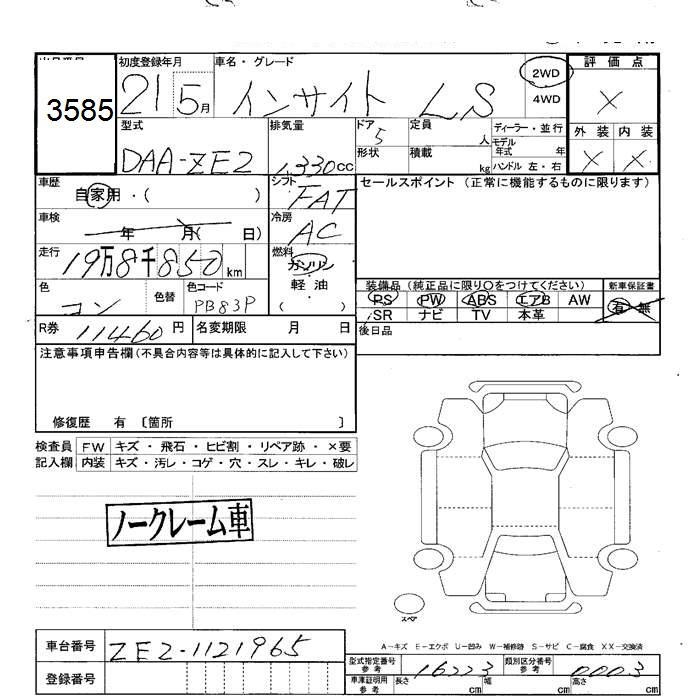 3585
初度登録年月 車名・グレード 2WD 評価点
21 5月 インサイト LS 4WD ×
型式 排気量 ドア 定員 ディーラー・並行 外装 内装
DAA-ZE2 1330cc 5 人 モデル年式 年 × ×
形状 積載 kg ハンドル 左・右
車歴 シフト セールスポイント (正常に機能するものに限ります)
自家用・( ) FAT
車検 冷房
年 月( 日) AC
走行 燃料
19万8千850km ガソリン
色 色替 色コード 軽油 装備品 (純正品に限り○をつけてください) 新車保証書
コン PB83P ( ) PS PW ABS エアB AW 有・無
SR ナビ TV 本革
R券 11460円 名変期限 月 日 後日品
注意事項申告欄(不具合内容等は具体的に記入して下さい)
修復歴 有 〔箇所 〕
検査員 FW キズ・飛石・ヒビ割・リペア跡・×要
記入欄 内装 キズ・汚レ・コゲ・穴・スレ・キレ・破レ
ノークレーム車
スペア
A-キズ E-エクボ U-凹み W-補修跡 S-サビ C-腐食 XX-交換済
車台番号 ZE2-1121965
型式指定番号 参考 16223 類別区分番号 参考 0003
登録番号 車庫証明用 参考 長さ cm 幅 cm 高さ cm